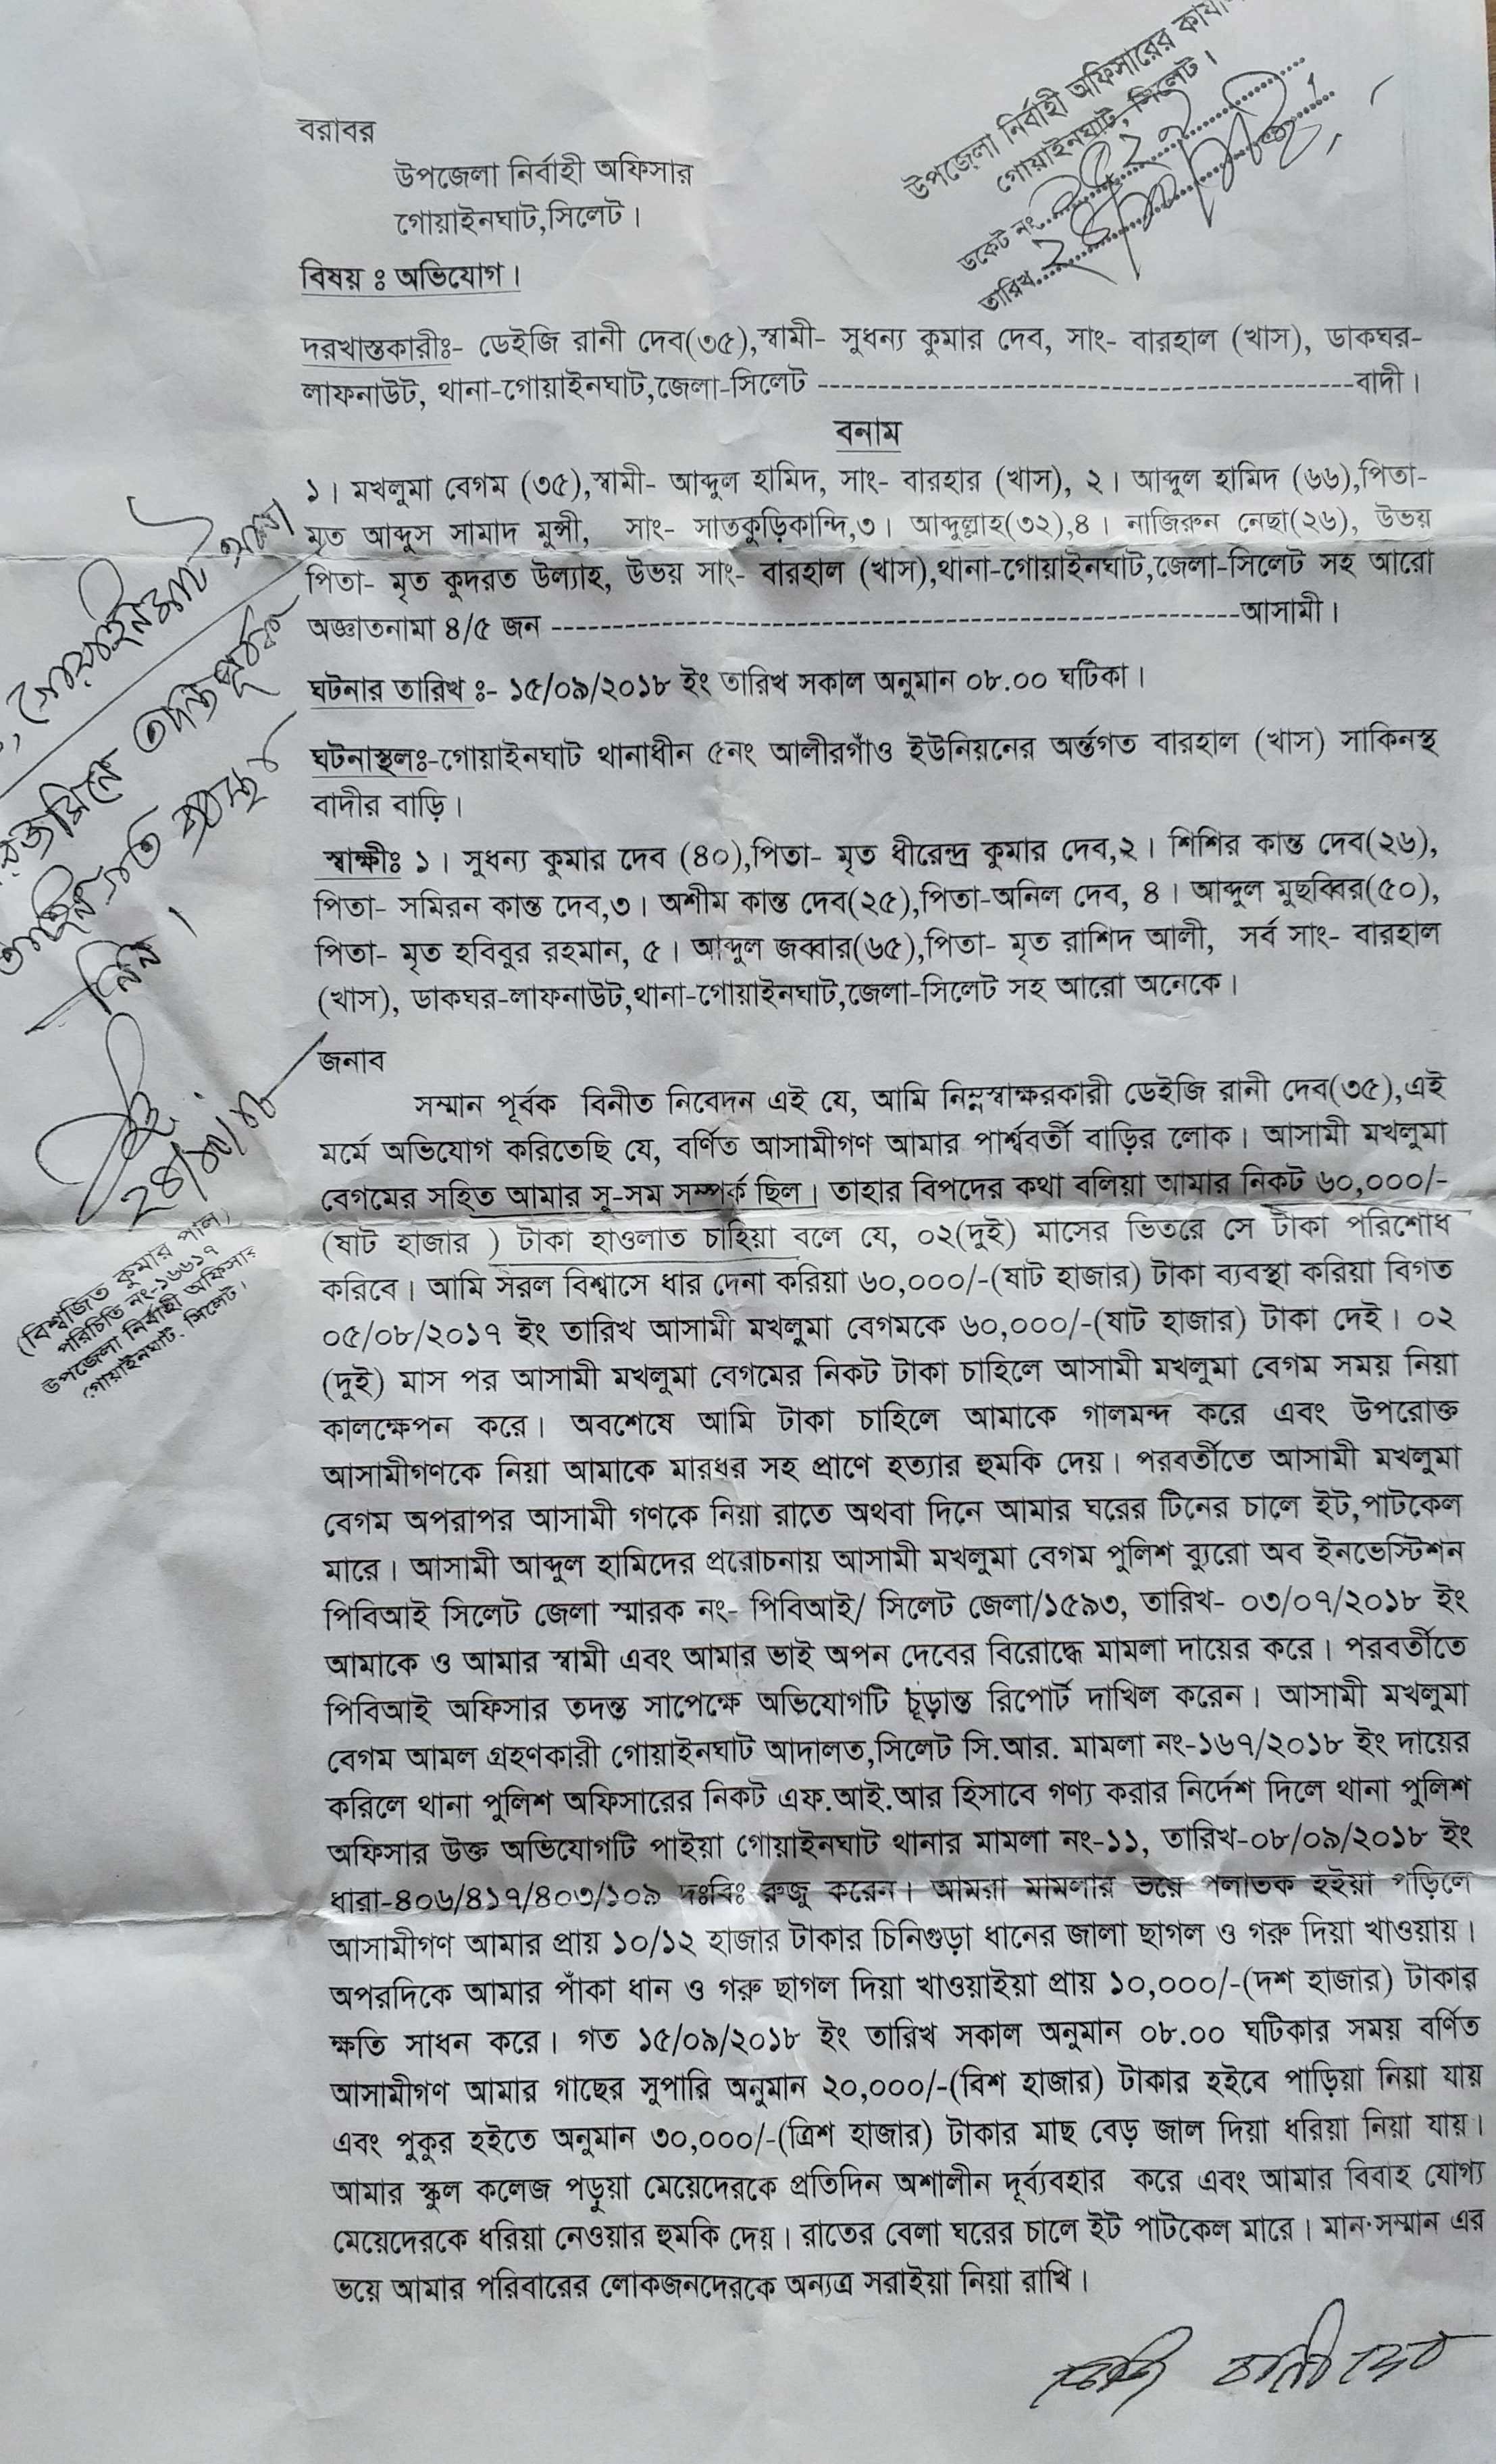 উপজেলা নির্বাহী অফিসারের
গোয়াইনঘাট, সিলেট।
ডকেট নং
তারিখ
বরাবর
উপজেলা নির্বাহী অফিসার
গোয়াইনঘাট,সিলেট।
বিষয় ঃ অভিযোগ।
দরখাস্তকারীঃ- ডেইজি রানী দেব(৩৫),স্বামী- সুধন্য কুমার দেব, সাং- বারহাল (খাস), ডাকঘর-
লাফনাউট, থানা-গোয়াইনঘাট,জেলা-সিলেট --------------------------------------------বাদী।
বনাম
১। মখলুমা বেগম (৩৫),স্বামী- আব্দুল হামিদ, সাং- বারহার (খাস), ২। আব্দুল হামিদ (৬৬),পিতা-
মৃত আব্দুস সামাদ মুন্সী, সাং- সাতকুড়িকান্দি,৩। আব্দুল্লাহ(৩২),৪। নাজিরুন নেছা(২৬), উভয়
পিতা- মৃত কুদরত উল্যাহ, উভয় সাং- বারহাল (খাস),থানা-গোয়াইনঘাট,জেলা-সিলেট সহ আরো
অজ্ঞাতনামা ৪/৫ জন --------------------------------------------------------আসামী।
ঘটনার তারিখ ঃ- ১৫/০৯/২০১৮ ইং তারিখ সকাল অনুমান ০৮.০০ ঘটিকা।
ঘটনাস্থলঃ-গোয়াইনঘাট থানাধীন ৫নং আলীরগাঁও ইউনিয়নের অর্ন্তগত বারহাল (খাস) সাকিনস্থ
বাদীর বাড়ি।
স্বাক্ষীঃ ১। সুধন্য কুমার দেব (৪০),পিতা- মৃত ধীরেন্দ্র কুমার দেব,২। শিশির কান্ত দেব(২৬),
পিতা- সমিরন কান্ত দেব,৩। অশীম কান্ত দেব(২৫),পিতা-অনিল দেব, ৪। আব্দুল মুছব্বির(৫০),
পিতা- মৃত হবিবুর রহমান, ৫। আব্দুল জব্বার(৬৫),পিতা- মৃত রাশিদ আলী, সর্ব সাং- বারহাল
(খাস), ডাকঘর-লাফনাউট,থানা-গোয়াইনঘাট,জেলা-সিলেট সহ আরো অনেকে।
জনাব
সম্মান পূর্বক বিনীত নিবেদন এই যে, আমি নিম্নস্বাক্ষরকারী ডেইজি রানী দেব(৩৫),এই
মর্মে অভিযোগ করিতেছি যে, বর্ণিত আসামীগণ আমার পার্শ্ববর্তী বাড়ির লোক। আসামী মখলুমা
বেগমের সহিত আমার সু-সম সম্পর্ক ছিল। তাহার বিপদের কথা বলিয়া আমার নিকট ৬০,০০০/-
(ষাট হাজার ) টাকা হাওলাত চাহিয়া বলে যে, ০২(দুই) মাসের ভিতরে সে টাকা পরিশোধ
করিবে। আমি সরল বিশ্বাসে ধার দেনা করিয়া ৬০,০০০/-(ষাট হাজার) টাকা ব্যবস্থা করিয়া বিগত
০৫/০৮/২০১৭ ইং তারিখ আসামী মখলুমা বেগমকে ৬০,০০০/-(ষাট হাজার) টাকা দেই। ০২
(দুই) মাস পর আসামী মখলুমা বেগমের নিকট টাকা চাহিলে আসামী মখলুমা বেগম সময় নিয়া
কালক্ষেপন করে। অবশেষে আমি টাকা চাহিলে আমাকে গালমন্দ করে এবং উপরোক্ত
আসামীগণকে নিয়া আমাকে মারধর সহ প্রাণে হত্যার হুমকি দেয়। পরবর্তীতে আসামী মখলুমা
বেগম অপরাপর আসামী গণকে নিয়া রাতে অথবা দিনে আমার ঘরের টিনের চালে ইট,পাটকেল
মারে। আসামী আব্দুল হামিদের প্ররোচনায় আসামী মখলুমা বেগম পুলিশ ব্যুরো অব ইনভেস্টিশন
পিবিআই সিলেট জেলা স্মারক নং- পিবিআই/ সিলেট জেলা/১৫৯৩, তারিখ- ০৩/০৭/২০১৮ ইং
আমাকে ও আমার স্বামী এবং আমার ভাই অপন দেবের বিরোদ্ধে মামলা দায়ের করে। পরবর্তীতে
পিবিআই অফিসার তদন্ত সাপেক্ষে অভিযোগটি চূড়ান্ত রিপোর্ট দাখিল করেন। আসামী মখলুমা
বেগম আমল গ্রহণকারী গোয়াইনঘাট আদালত,সিলেট সি.আর. মামলা নং-১৬৭/২০১৮ ইং দায়ের
করিলে থানা পুলিশ অফিসারের নিকট এফ.আই.আর হিসাবে গণ্য করার নির্দেশ দিলে থানা পুলিশ
অফিসার উক্ত অভিযোগটি পাইয়া গোয়াইনঘাট থানার মামলা নং-১১, তারিখ-০৮/০৯/২০১৮ ইং
ধারা-৪০৬/৪১৭/৪০৩/১০৯ দঃবিঃ রুজু করেন। আমরা মামলার ভয়ে পলাতক হইয়া পড়িলে
আসামীগণ আমার প্রায় ১০/১২ হাজার টাকার চিনিগুড়া ধানের জালা ছাগল ও গরু দিয়া খাওয়ায়।
অপরদিকে আমার পাঁকা ধান ও গরু ছাগল দিয়া খাওয়াইয়া প্রায় ১০,০০০/-(দশ হাজার) টাকার
ক্ষতি সাধন করে। গত ১৫/০৯/২০১৮ ইং তারিখ সকাল অনুমান ০৮.০০ ঘটিকার সময় বর্ণিত
আসামীগণ আমার গাছের সুপারি অনুমান ২০,০০০/-(বিশ হাজার) টাকার হইবে পাড়িয়া নিয়া যায়
এবং পুকুর হইতে অনুমান ৩০,০০০/-(ত্রিশ হাজার) টাকার মাছ বেড় জাল দিয়া ধরিয়া নিয়া যায়।
আমার স্কুল কলেজ পড়ুয়া মেয়েদেরকে প্রতিদিন অশালীন দূর্ব্যবহার করে এবং আমার বিবাহ যোগ্য
মেয়েদেরকে ধরিয়া নেওয়ার হুমকি দেয়। রাতের বেলা ঘরের চালে ইট পাটকেল মারে। মান-সম্মান এর
ভয়ে আমার পরিবারের লোকজনদেরকে অন্যত্র সরাইয়া নিয়া রাখি।
গোয়াইনঘাট
তদন্ত পূর্বক
নিন।
(বিশ্বজিত কুমার পাল)
পরিচিতি নং-১৬৬১৭
উপজেলা নির্বাহী অফিসার
গোয়াইনঘাট, সিলেট।
রানী দেব